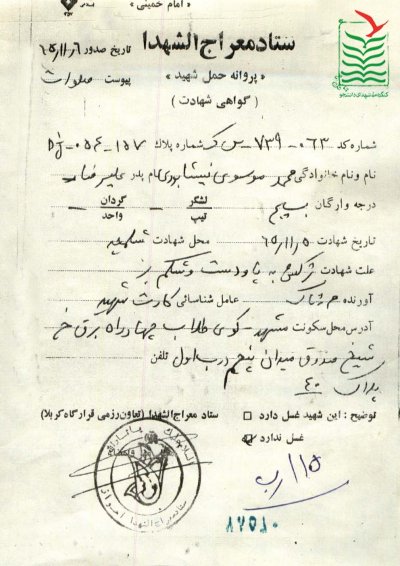 « امام خمینی »
ستاد معراج الشهدا
تاریخ صدور ۶۵/۱۱/۶
« پروانه حمل شهید »
پیوست صلوات
( گواهی شهادت )
کنگره شهدای دانشجو
شماره کد ۰۶۳-۷۳۹-س ک شماره پلاک ۱۵۷-۰۵۴-DJ
نام و نام خانوادگی محمد موسوی نیشابوری نام پدر علیرضا
درجه وارگان بسیج لشگر تیپ گردان واحد
تاریخ شهادت ۶۵/۱۱/۵ محل شهادت شلمچه
علت شهادت ترکش به پا و دست و شکم
آورنده عامل شناسائی کارت شهید
آدرس محل سکونت مشهد - کوی طلاب چهارراه برق خ
شیخ صدوق میدان پنجم درب اول تلفن
پلاک ۴۰
توضیح : این شهید غسل دارد □ ستاد معراج الشهدا (تعاون رزمی قرارگاه کربلا)
غسل ندارد
ستاد معراج الشهدا اهواز